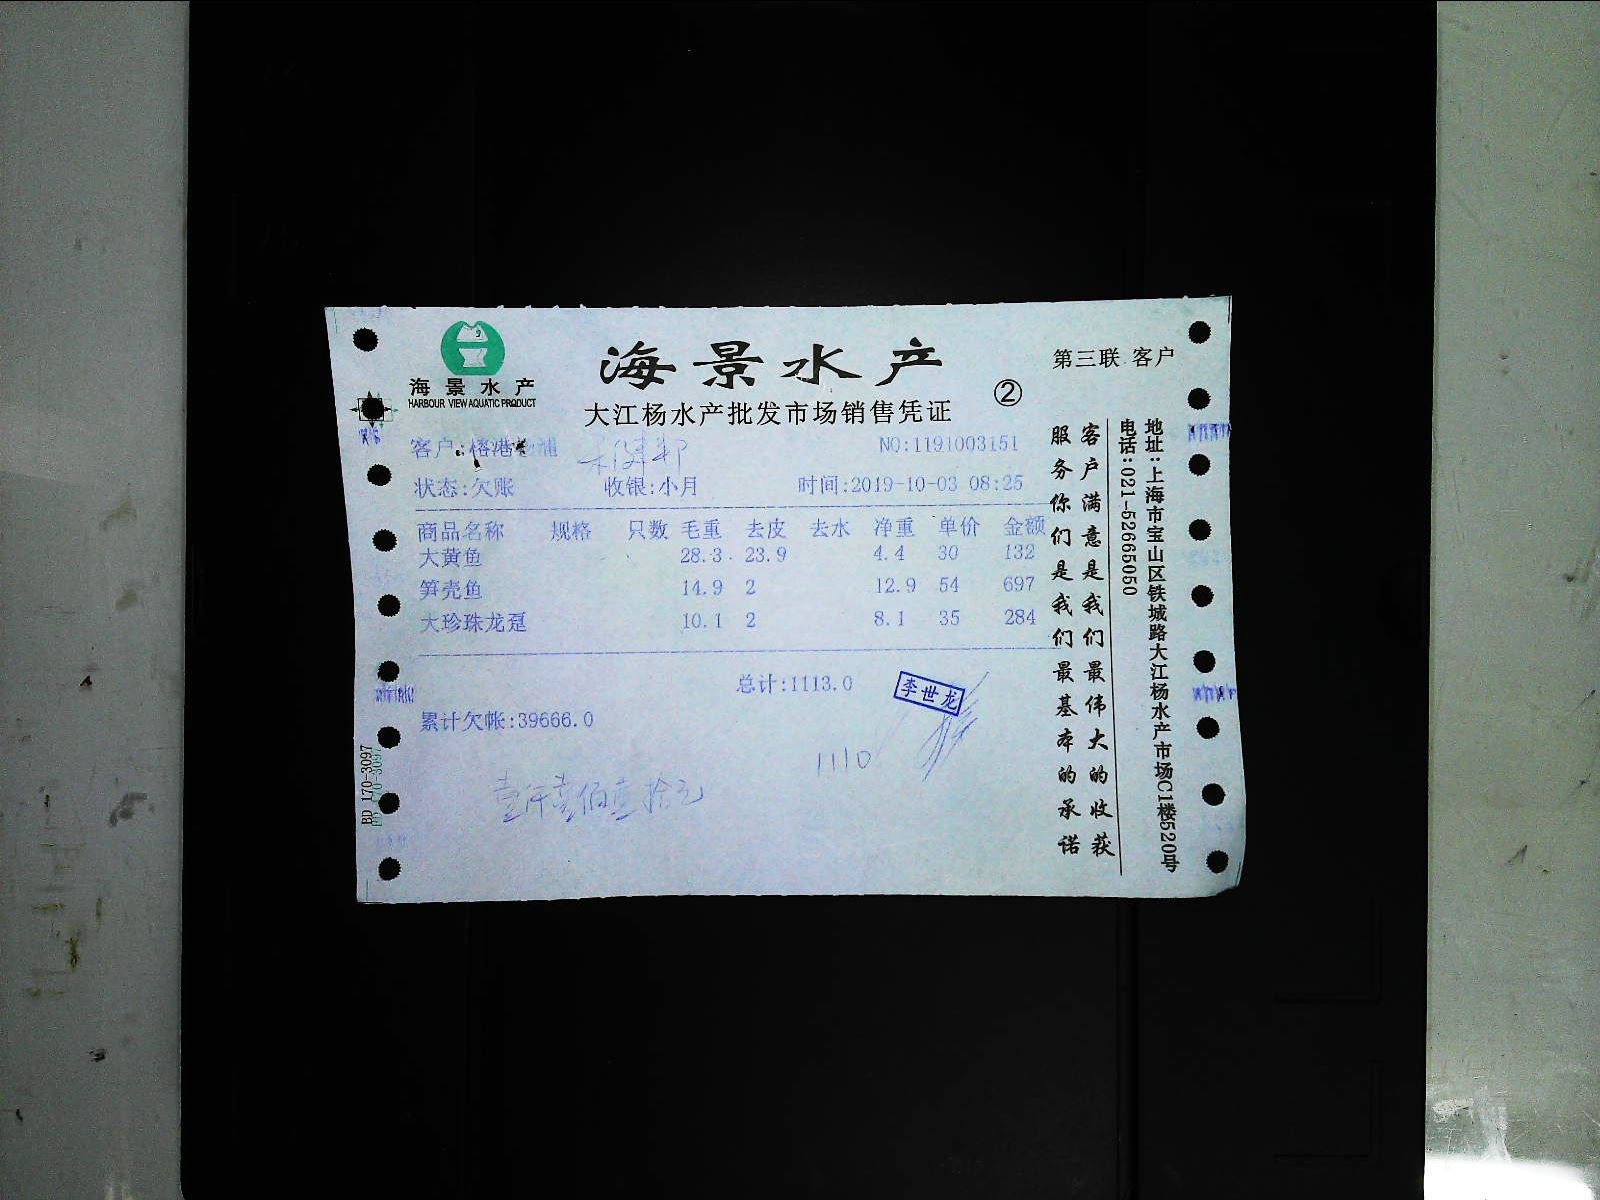 海景水产
HARBOUR VIEW AQUATIC PRODUCT
海景水产
大江杨水产批发市场销售凭证
②
第三联 客户
客户:榕港 浦
NO:1191003151
状态:欠账 收银:小月 时间:2019-10-03 08:25
商品名称 规格 只数 毛重 去皮 去水 净重 单价 金额
大黄鱼 28.3 23.9 4.4 30 132
笋壳鱼 14.9 2 12.9 54 697
大珍珠龙趸 10.1 2 8.1 35 284
总计:1113.0
李世龙
累计欠帐:39666.0
1110
壹仟壹佰壹拾元
客户满意是我们最伟大的收获
服务你们是我们最基本的承诺
地址:上海市宝山区铁城路大江杨水产市场C1楼520号
电话:021-52665050
BD 170-3097